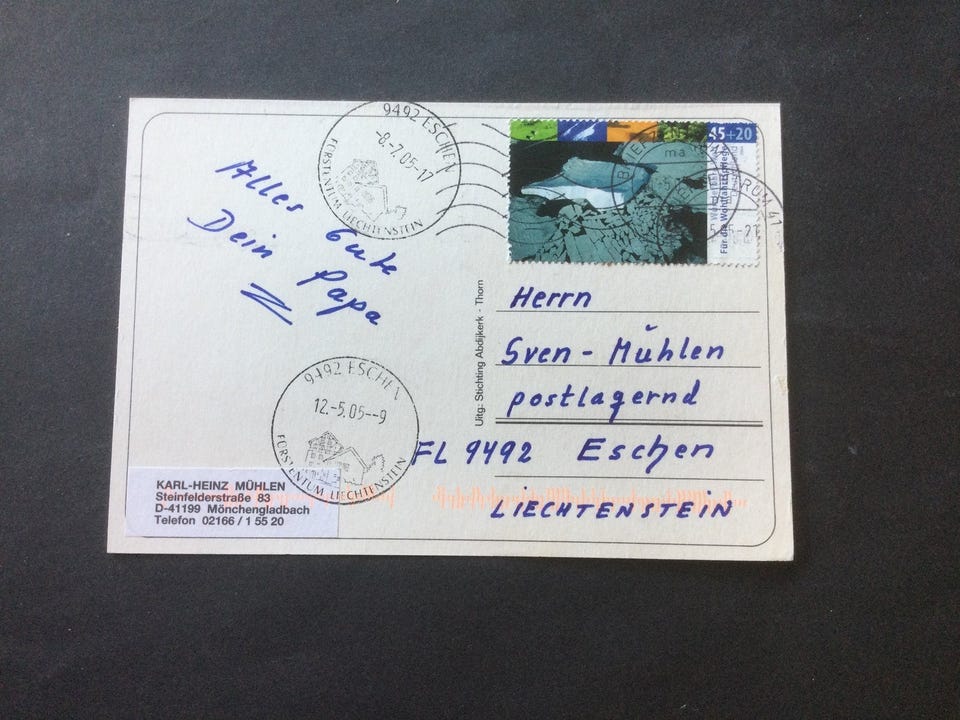 9492 ESCHEN
-8.-7.05-17
FÜRSTENTUM LIECHTENSTEIN
45+20
Für die Wohlfahrtspflege
Alles Gute
Dein Papa
Uitg: Stichting Abdijkerk - Thorn
Herrn
Sven-Mühlen
postlagernd
FL 9492 Eschen
LIECHTENSTEIN
9492 ESCHEN
12.-5.05--9
FÜRSTENTUM LIECHTENSTEIN
KARL-HEINZ MÜHLEN
Steinfelderstraße 83
D-41199 Mönchengladbach
Telefon 02166 / 1 55 20